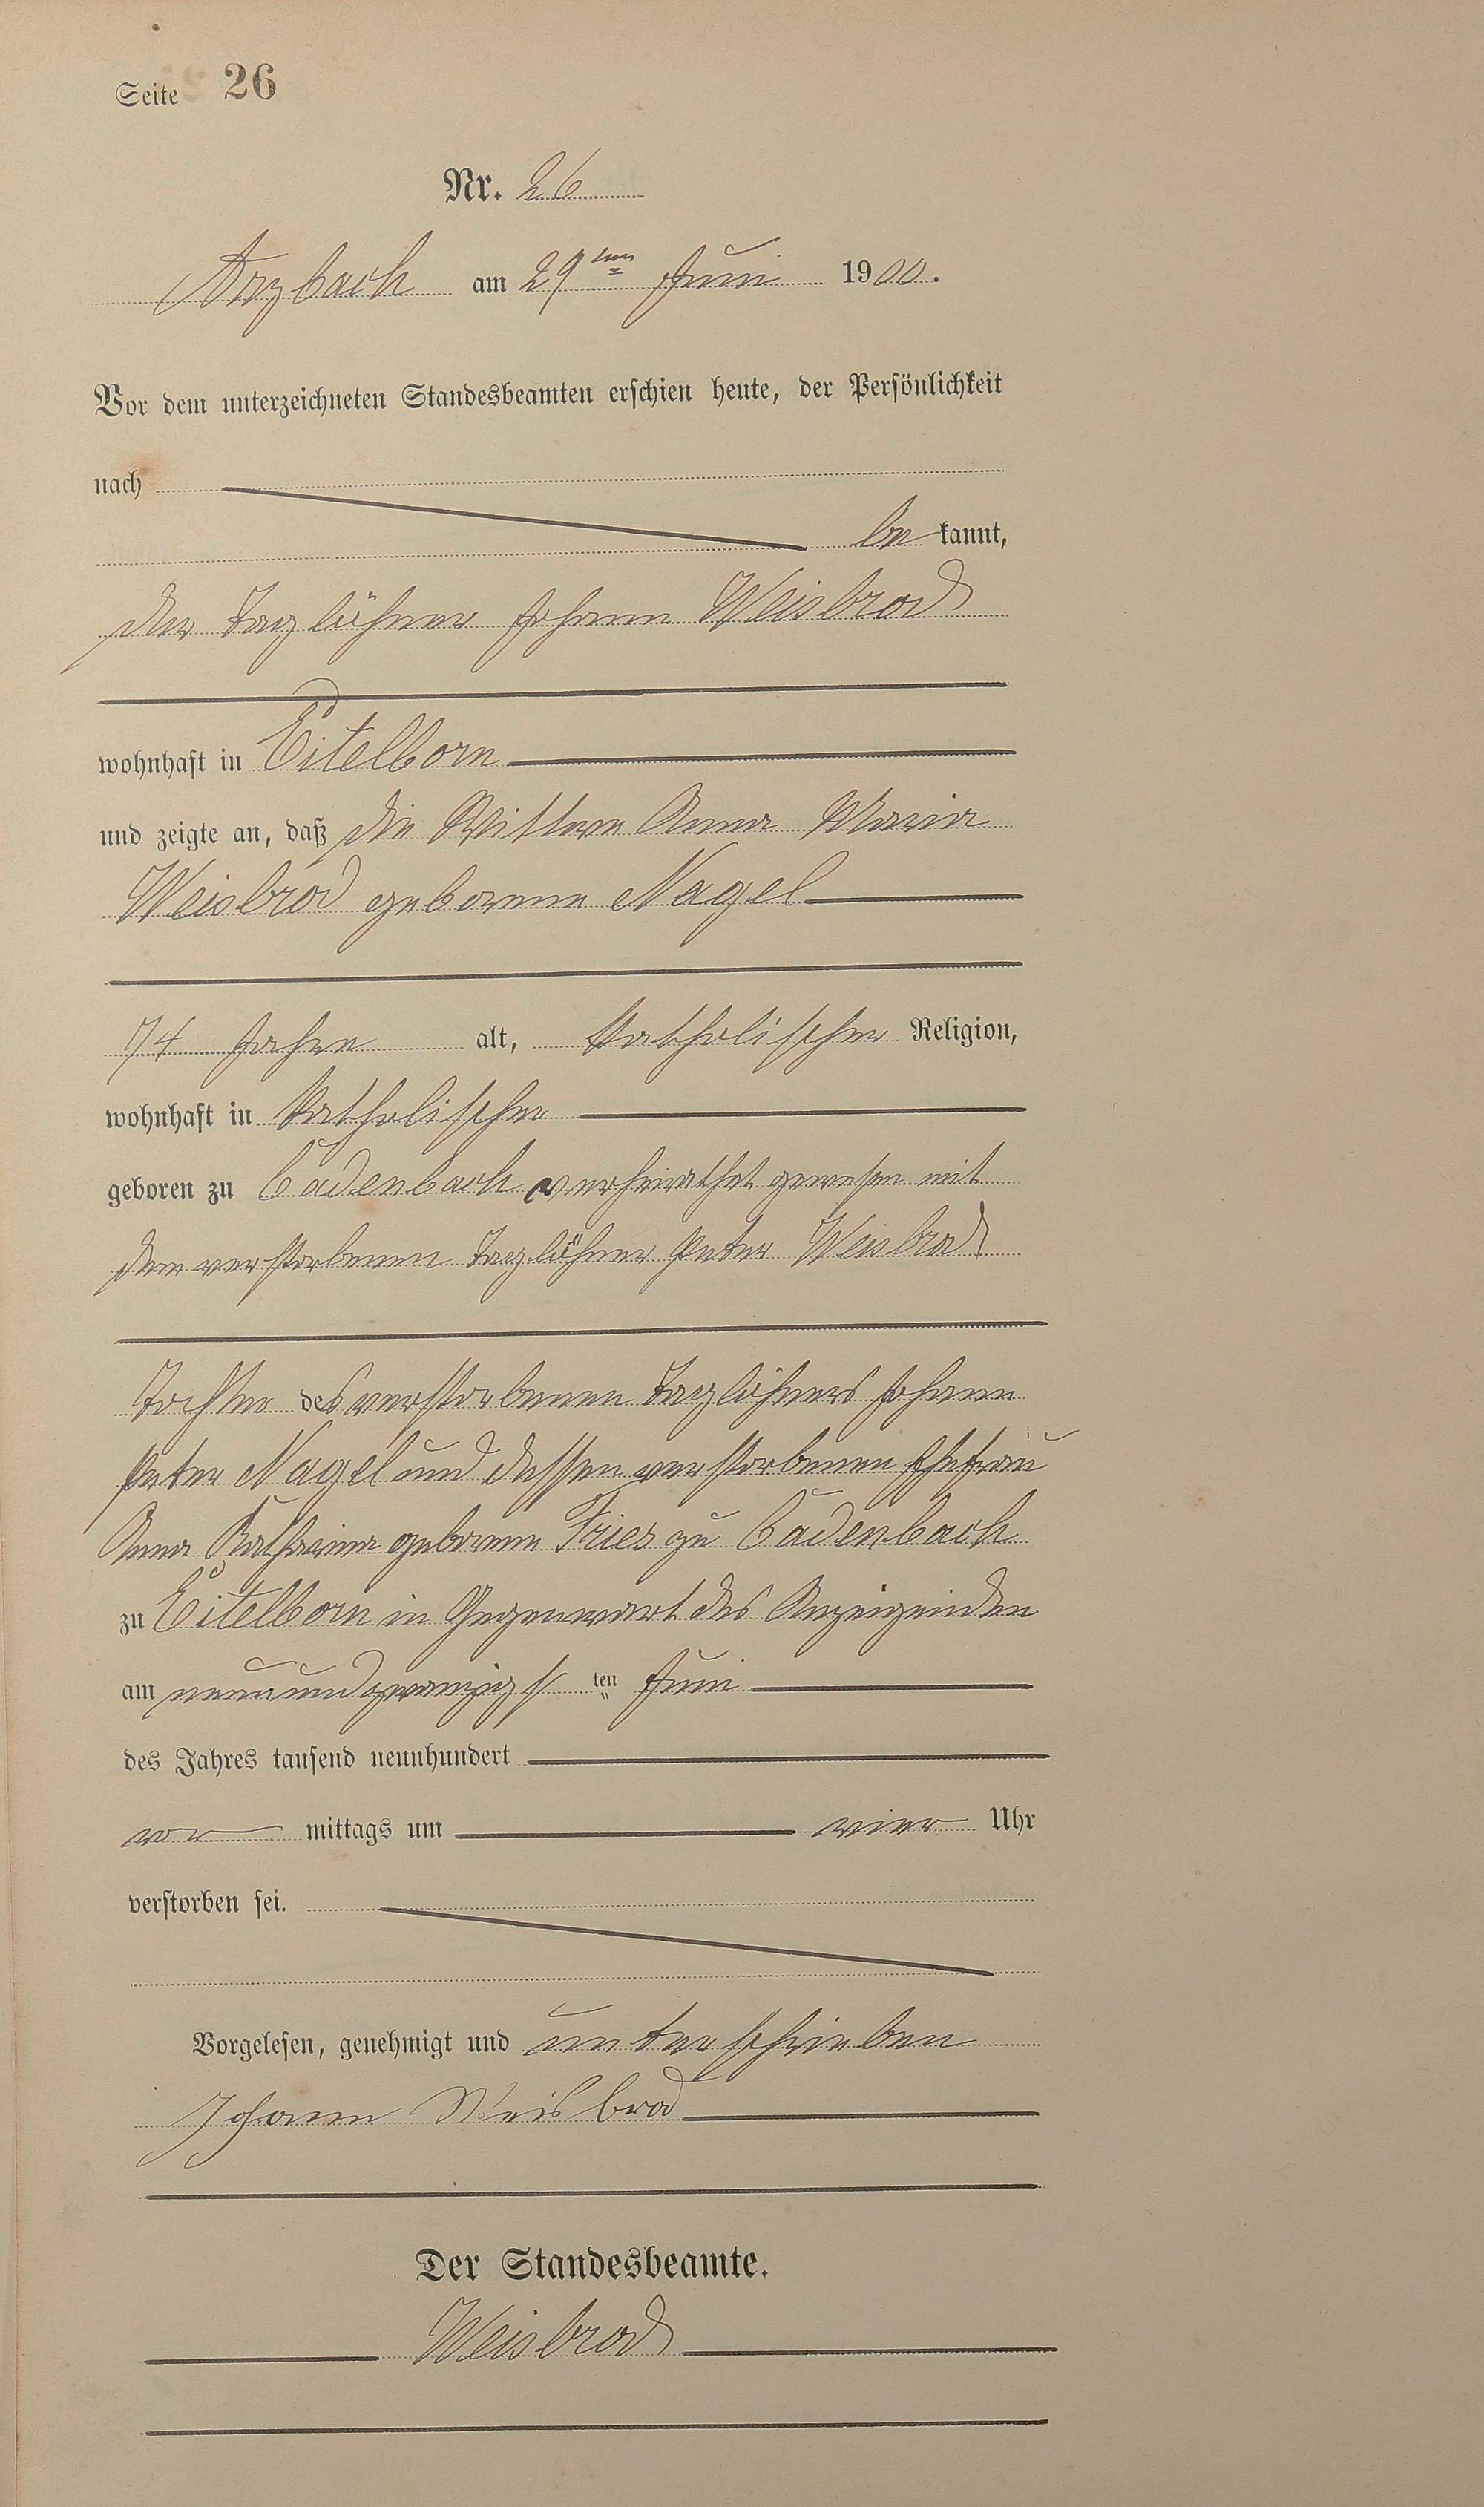 Seite 26
Nr. 26
Arzbach am 29ten Juni 1900.
Vor dem unterzeichneten Standesbeamten erschien heute, der Persönlichkeit
nach
be kannt,
der Taglöhner Johann Weisbrod
wohnhaft in Eitelborn
und zeigte an, daß die Wittwe Anna Maria
Weisbrod geborene Nagel
74 Jahre alt, katholischer Religion,
wohnhaft in katholischer
geboren zu Cadenbach verheirathet gewesen mit
dem verstorbenen Taglöhner Peter Weisbrod
Tochter des verstorbenen Taglöhners Johann
Peter Nagel und dessen verstorbenen Ehefrau
Anna Katharina geborene Fries zu Cadenbach
zu Eitelborn in Gegenwart des Anzeigenden
am neunundzwanzigsten Juni
des Jahres tausend neunhundert
vor mittags um vier Uhr
verstorben sei.
Vorgelesen, genehmigt und unterschrieben
Johann Weisbrod
Der Standesbeamte.
Weisbrod